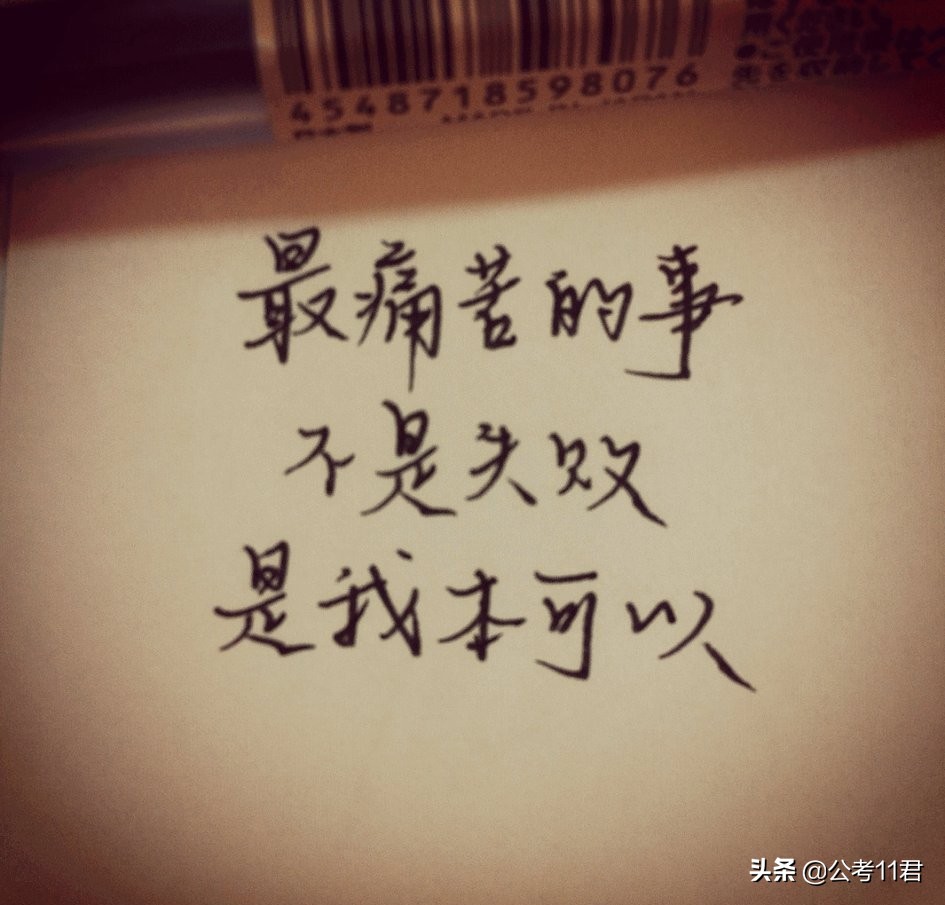 4548718598076
最痛苦的事
不是失败
是我本可以
头条 @公考11君